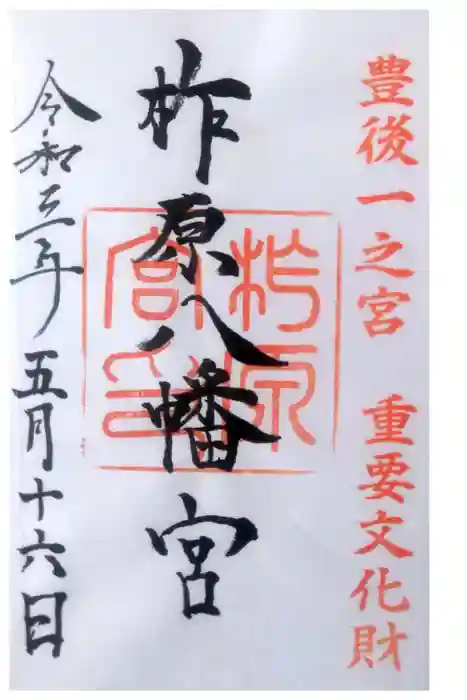 豊後一之宮 重要文化財
柞原八幡宮
柞原宮印
令和三年五月十六日